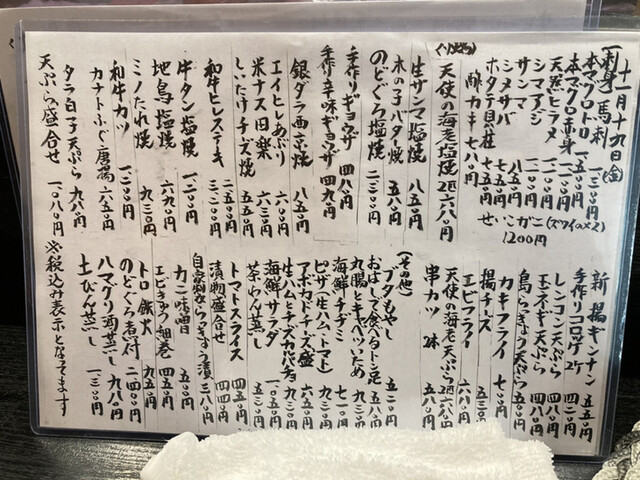 十一月十九日(金)
刺身 馬刺 一、三〇〇円
本マグロトロ 一、五〇〇円
本マグロ赤身
天然ヒラメ
シマアジ
サンマ 八五〇円
シメサバ 七五〇円
ホタテ貝柱 七五〇円
酢カキ 七八〇円
せいこガニ(ズワイのメス) 1200円
天使の海老塩焼 2匹 六八〇円
生サンマ塩焼 八五〇円
木の子バター焼 五八〇円
のどぐろ塩焼 二、三〇〇円
手作りギョウザ 四八〇円
手作辛味ギョウザ 四九〇円
銀ダラ西京焼 八五〇円
エイヒレあぶり 六〇〇円
米ナス田楽 六五〇円
しいたけチーズ焼 五五〇円
和牛ヒレステーキ 二、五〇〇円
牛タン塩焼 一、二〇〇円
地鳥塩焼 六九〇円
ミノたれ焼 九二〇円
和牛カツ 一、二〇〇円
カナトふぐ唐揚 六八〇円
タラ白子天ぷら 九八〇円
天ぷら盛合せ 一、〇八〇円
新揚ギンナン 五五〇円
手作りコロッケ 2ケ 四二〇円
レンコン天ぷら 四八〇円
玉ネギ天ぷら 四八〇円
島らっきょう天ぷら 五八〇円
カキフライ 七〇〇円
揚チーズ 五三〇円
エビフライ
天使の海老天ぷら 2匹 六八〇円
串カツ 2本 五八〇円
(その他)
ブタもやし 五二〇円
おはしで食べるトン足 五八〇円
丸腸とキャベツいため 九二〇円
海鮮チヂミ 七一〇円
ピザ(生ハム、トマト) 九三〇円
アボカドとチーズ盛 六五〇円
生ハムとチーズカルパッチョ 九三〇円
海鮮サラダ 一、〇五〇円
茶わん蒸し 五三〇円
トマトスライス 四四〇円
漬物盛合せ 四五〇円
自家製島らっきょう漬 三八〇円
カニ味噌 五〇〇円
エビきゅう細巻 五五〇円
トロ鉄火 九五〇円
のどぐろ煮付 二、四〇〇円
ハマグリ酒蒸し 九八〇円
土びん蒸し 一、三〇〇円
※税込み表示となってます